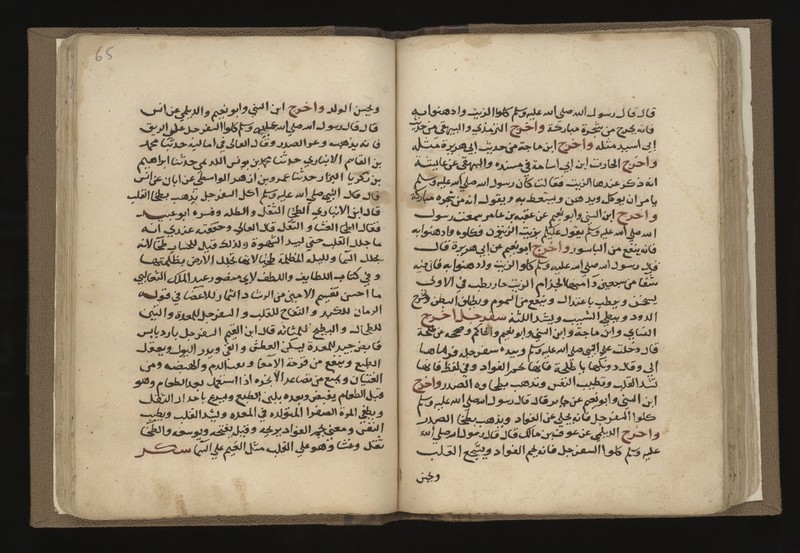 قال قال رسول الله صلى الله عليه وسلم كلوا الزيت وادهنوا به
فانه يخرج من شجرة مباركة واخرج الترمذي والبيهقي من حديث
ابي اسيد مثله واخرج ابن ماجة من حديث ابي هريرة مثله
واخرج الحارث ابن ابي اسامة في مسنده والبيهقي عن عائشة
انه ذكر عندها الزيت فقالت كان رسول الله صلى الله عليه وسلم
يامر ان يوكل ويدهن ويستعط به ويقول انه من شجرة مباركة
واخرج ابن السني وابو نعيم عن عقبة بن عامر سمعت رسول
الله صلى الله عليه وسلم يقول عليكم بزيت الزيتون فكلوه وادهنوا به
فانه ينفع من الباسور واخرج ابو نعيم عن ابي هريرة قال
قال رسول الله صلى الله عليه وسلم كلوا الزيت وادهنوا به فان فيه
شفا من سبعين دا منها الجذام الزيت حار رطب في الاولى
يسخن ويرطب باعتدال وينفع من السموم ويطلق البطن ويخرج
الدود ويبطي الشيب ويشد اللثة سفرجل اخرج
النساي وابن ماجة وابن السني وابو نعيم والحاكم وصححه عن طلحة
قال دخلت على النبي صلى الله عليه وسلم وبيده سفرجلة فرماها
الي وقال دونكها يا طلحة فانها تجم الفواد وفي لفظ فانها
تشد القلب وتطيب النفس وتذهب بطخاوة الصدر واخرج
ابن السني وابو نعيم عن جابر قال قال رسول الله صلى الله عليه وسلم
كلوا السفرجل فانه يجلي عن الفواد ويذهب بطخا الصدر
واخرج الديلمي عن عوف بن مالك قال قال رسول الله صلى الله
عليه وسلم كلوا السفرجل فانه يجم الفواد ويشجع القلب
ويحسن
65
ويحسن الولد واخرج ابن السني وابو نعيم والديلمي عن انس
قال قال رسول الله صلى الله عليه وسلم كلوا السفرجل على الريق
فانه يذهب وغر الصدر وقال القالي في اماليه حدثنا محمد
بن القاسم الانباري حدثنا محمد بن يونس الكديمي حدثنا ابراهيم
بن زكريا البزار حدثنا عمرو بن ازهر الواسطي عن ابان عن انس
قال قال النبي صلى الله عليه وسلم اكل السفرجل يذهب بطخا القلب
قال ابن الانباري الطخا الثقل والظلمة وفسره ابو عبيد
فقال الطخا الغشا والثقل قال القالي وحقيقته عندي انه
ما جلل القلب حتى يسد الشهوة ولذلك قيل للسحاب طخا لانه
يجلل السما ولليلة المظلمة طخيا لانها تجلل الارض بظلمتها
وفي كتاب اللطايف واللطف لابي منصور عبد الملك الثعالبي
ما احسن تقسيم الاميني من ارشاد الثمار للاعضا في قوله
الرمان للكبد والتفاح للقلب والسفرجل للمعدة والتين
للطحال والبطيخ للمثانة قال ابن القيم السفرجل بارد يابس
قابض جيد للمعدة يسكن العطش والقي ويدر البول ويعقل
الطبع وينفع من قرحة الامعا ونفث الدم والهيضة ومن
الغثيان ويمنع من تصاعد الابخرة اذا استعمل بعد الطعام وهو
قبل الطعام يقبض وبعده يلين الطبع ويسرع باحدار الثفل
ويطفي المرة الصفرا المتولدة في المعدة ويشد القلب ويطيب
النفس ومعنى تجم الفواد تريحه وقيل تفتحه وتوسعه والطخا
ثقل وغشا وهو على القلب مثل الغيم على السما سكر